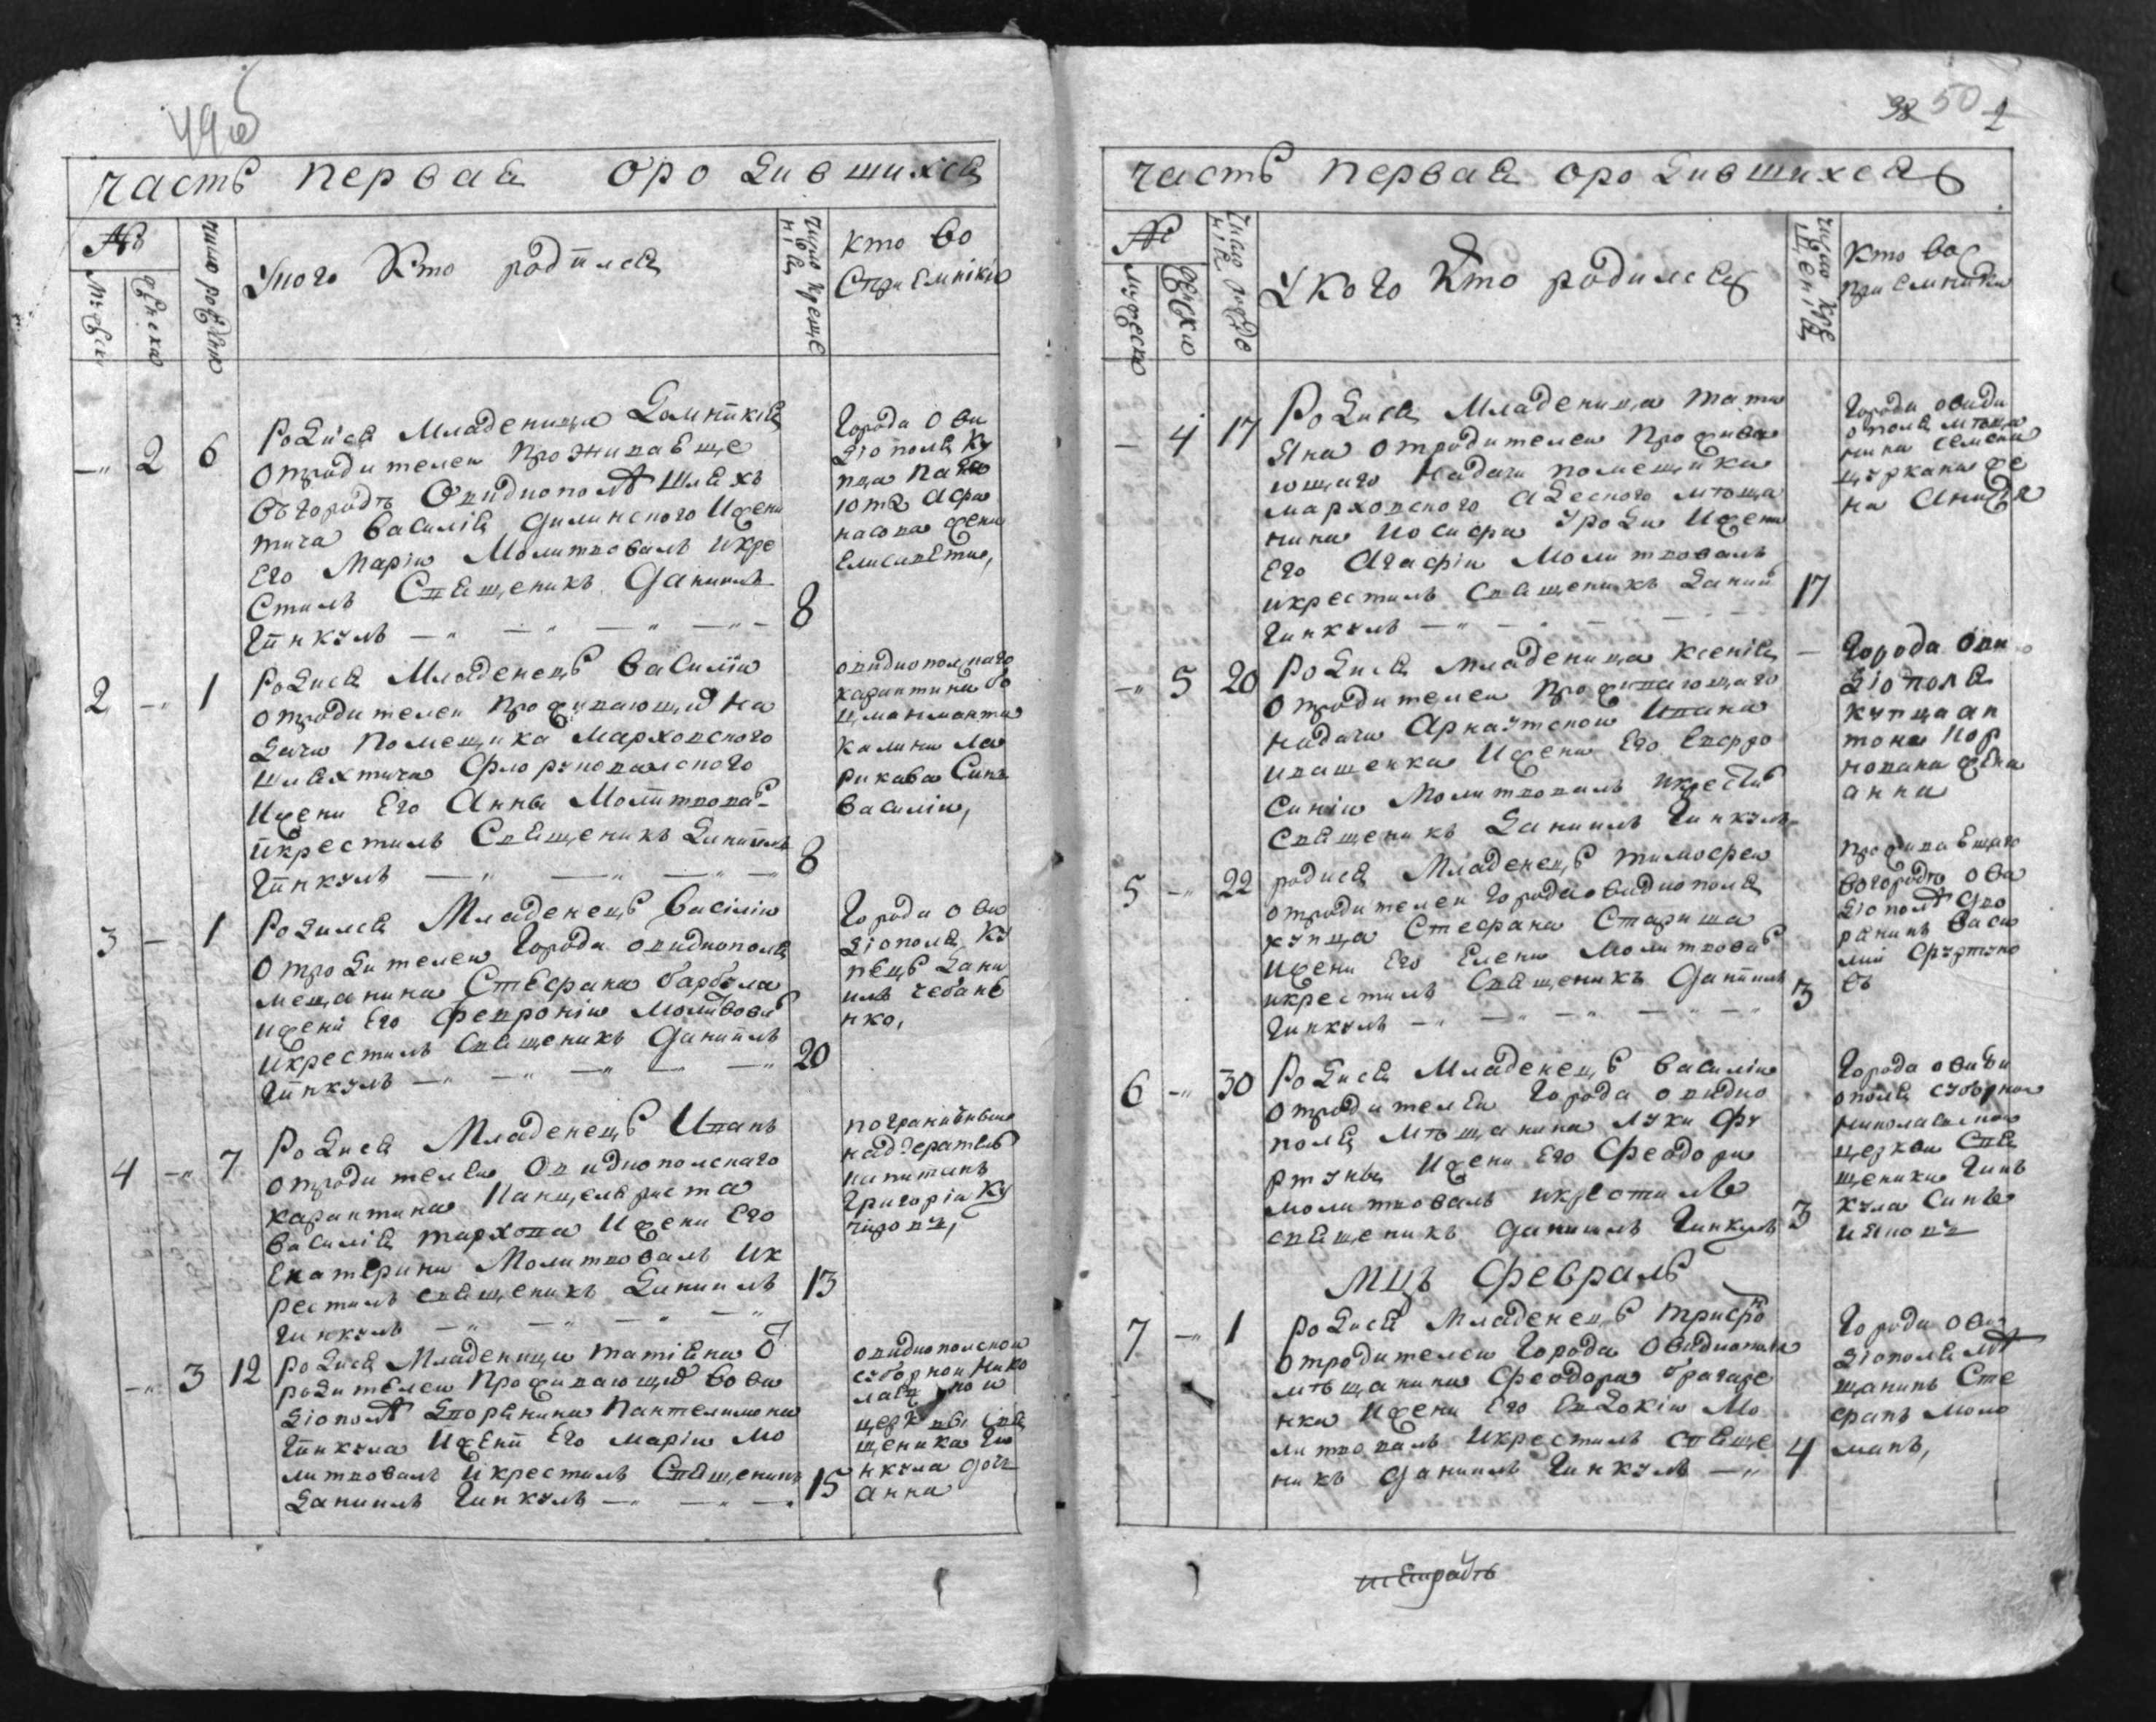 49об
часть первая о родившихся
№
Мужеск
Женска
Число рожден
У кого Кто родился
Число креще
нія
кто во
Спріемніки
2 6
Родися Младеница Домникія
от родителеи Проживающе
въ городѣ Овидиополѣ Шляхъ
тича Василія Жилинского И жени
Его Маріи Молитвовалъ и кре
Стилъ Священикъ Даниилъ
Гинкулъ
8
Города Ови
діополя Ку
пца Пана
юта Афа
насова жена
Елисавета,
2 1
Родися Младенецъ Василіи
от родителеи Проживающий на
Дачи Помещика Марховского
Шляхтича Флор
И жени Его Анны Молитвова
и крестилъ Священикъ Даниилъ
Гинкулъ
8
овидиополскаго
карантина бо
цманманта
Калини Ла
рикова Синъ
Василіи,
3 1
Родился Младенецъ Василіи
От родителеи Города овидиополя
мещанина Стефана Барбула
и жени Его Февроніи Молитвова
и крестилъ Священикъ Даниилъ
Гинкулъ
20
Города Ови
діополя Ку
пецъ Дани
илъ Чебане
нко,
4 7
Родися Младенецъ Иванъ
От родителеи Овидиополскаго
карантина Канцеляриста
Василія Мархова И жени Его
Екатерини Молитвовалъ и к
рестилъ священикъ Даниилъ
Гинкулъ
13
пограничныи
надзератель
капитанъ
Григоріи Ку
3 12
Родися Младеница Татіяна о
родителеи Проживающий во Ови
діополѣ Дворянина Пантелимона
Гинкула И жени Его Маріи Мо
литвовалъ и крестилъ Священикъ
Даниилъ Гинкулъ
15
овидиополскои
соборнои Нико
лаевскои
церкви Свя
щеника Ги
нкула дочь
Анна
50 2
часть первая о родившихся
№
мужеска
женска
Число рожде
нія
У кого Кто родился
Число кре
щенія
Кто вос
приемники
4 17
Родися Младеница тати
яна от родителеи Прожива
ющаго На дачи помещика
марховского Адеского мѣща
нина Иосифа Урови И жени
Его Агафіи Молитвовалъ
и крестилъ Священикъ Даниил
Гинкулъ
17
Города овиди
ополя мѣща
нина Семена
Цуркана же
на Анна
5 20
Родися младеница Ксенія
От родителеи Проживающаго
на дачи Арнаутскои Ивана
Ивашенка И жени Его Евфро
синіи Молитвовалъ и крестилъ
Священикъ Даниилъ Гинкулъ
Города Ови
діополя
Купца ан
тона Пор
Нована жена
анна
5 22
родися Младенецъ тимофеи
от родителеи Города овидиополя
купца Стефана Стариша
И жени Его Елени Молитвова
и крестилъ Священикъ Даниилъ
Гинкулъ
3
Проживающаго
во городѣ Ови
діополѣ Дво
ранинъ Васи
лии Фуртуно
въ
6 30
Родися Младенецъ Василіи
от родителеи Города овидио
поля мѣщанина Луки Фу
ртуны И жени Его Феодори
молитвовалъ и крестилъ
священикъ Даниилъ Гинкулъ
3
Города овиди
ополя соборнои
николаевскои
церкви Свя
щеника Гинъ
кула Синъ
мцъ Февраль
7 1
родися Младенецъ Трифо
н
от родителеи Города Овидиополя
мѣщанина Феодора Брагаре
нка И жени Его Евдокіи Мо
литвовалъ и крестилъ свяще
никъ Даниилъ Гинкулъ
4
Города Ови
діополя мѣ
щанинъ Сте
фанъ Моло
манъ,